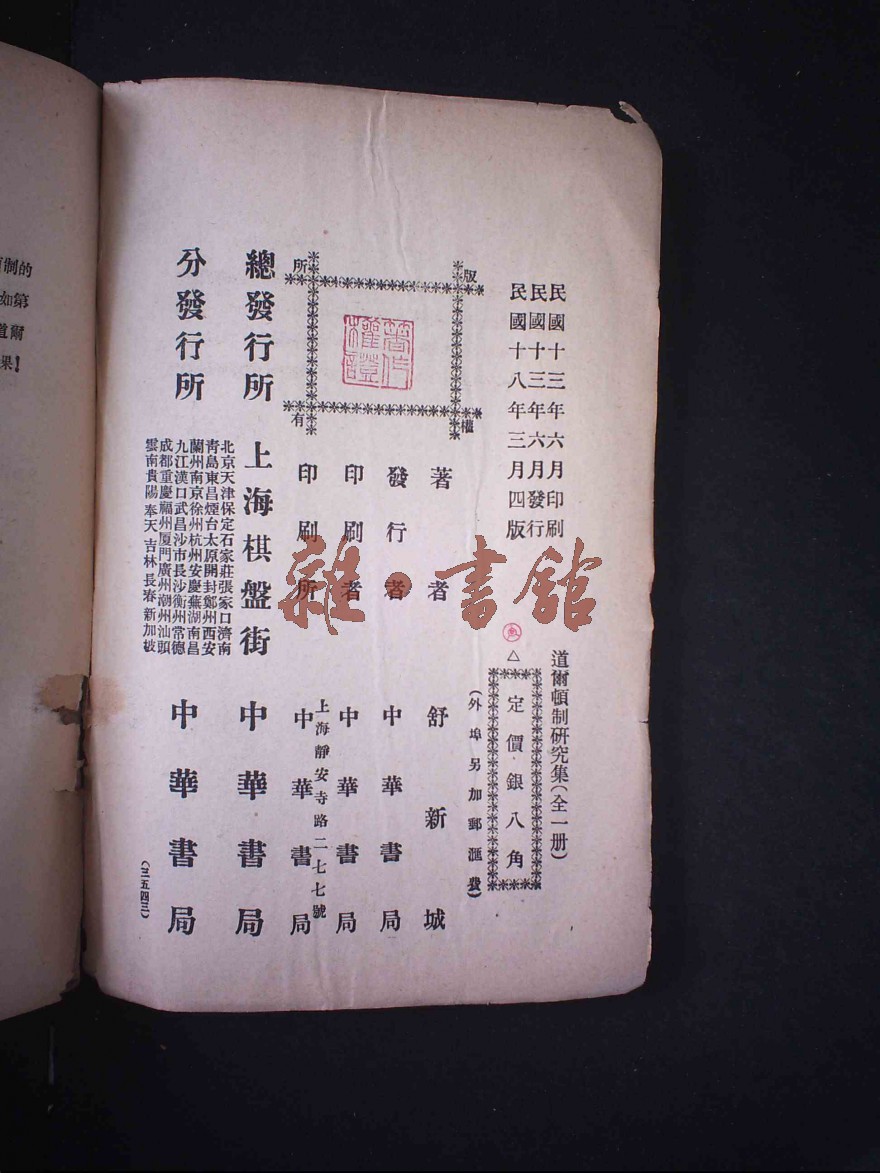 民國十三年六月印刷
民國十三年六月發行
民國十八年三月四版
道爾頓制研究集(全一册)
叄
△
定價銀八角
(外埠另加郵滙費)
版權所有
著作權證
著者 舒新城
發行者 中華書局
印刷者 中華書局
上海靜安寺路二七七號
印刷所 中華書局
總發行所 上海棋盤街 中華書局
分發行所
北京天津保定石家莊張家口濟南
青島東昌煙台太原開封鄭州西安
蘭州南京徐州杭州安慶蕪湖南昌
九江漢口武昌沙市長沙衡州常德
成都重慶福州厦門廣州潮州汕頭
雲南貴陽奉天吉林長春新加坡
中華書局
(三五四三)
雜·書館
制的
如第
道爾
果!